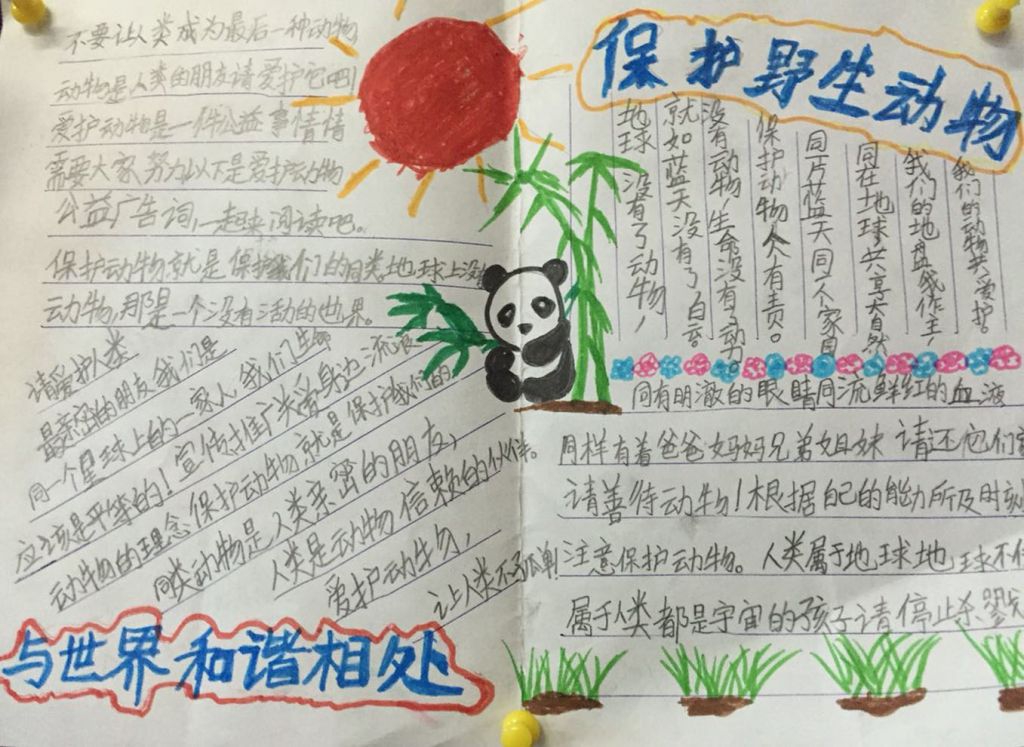 不要让人类成为最后一种动物
动物是人类的朋友请爱护它吧!
爱护动物是一件公益事情情
需要大家努力以下是爱护动物
公益广告词,一起来阅读吧。
保护动物就是保护我们的同类地球上没
动物,那是一个没有活动的世界。
请爱护人类
最亲密的朋友,我们是
同一个星球上的一家人,我们生命
应该是平等的!宣传推广关爱身边流浪
动物的理念保护动物就是保护我们的
同类动物是人类亲密的朋友,
人类是动物信赖的伙伴。
爱护动牛物,
让人类不孤单!
与世界和谐相处
保护野生动物
我们的动物共爱护。
我们的地盘我作主,
同在地球共享大自然
同片蓝天同个家园
保护动物人人有责。
没有动物,生命没有了动。
就如蓝天没有了白云
地球没有了动物,
同有明澈的眼睛同流鲜红的血液
同样有着爸爸妈妈兄弟姐妹 请还它们
请善待动物!根据自己的能力所及时刻
注意保护动物。人类属于地球地球不
属于人类都是宇宙的孩子请停止杀戮